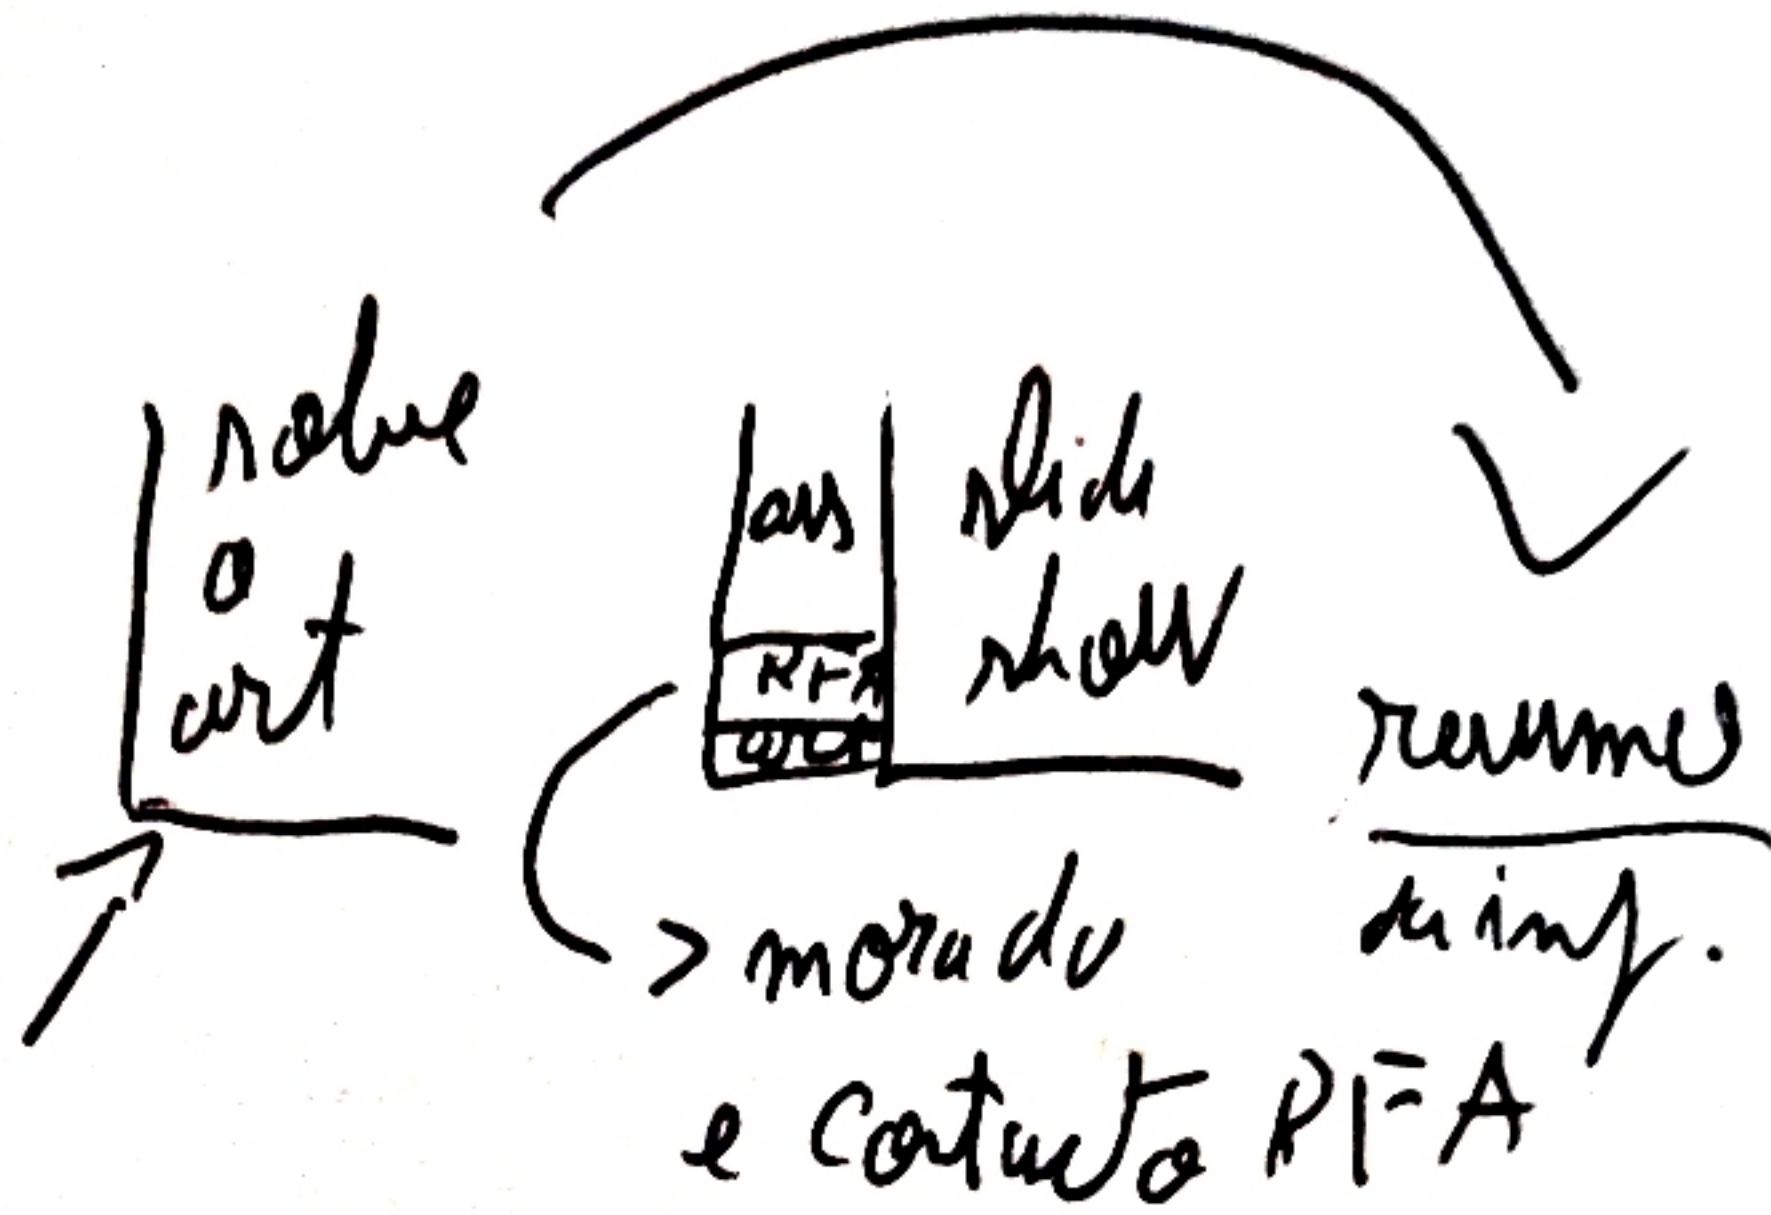 sobre
o
art
ass
RFA
slide
show
resumo
da inf.
> morada
e contacto RFA